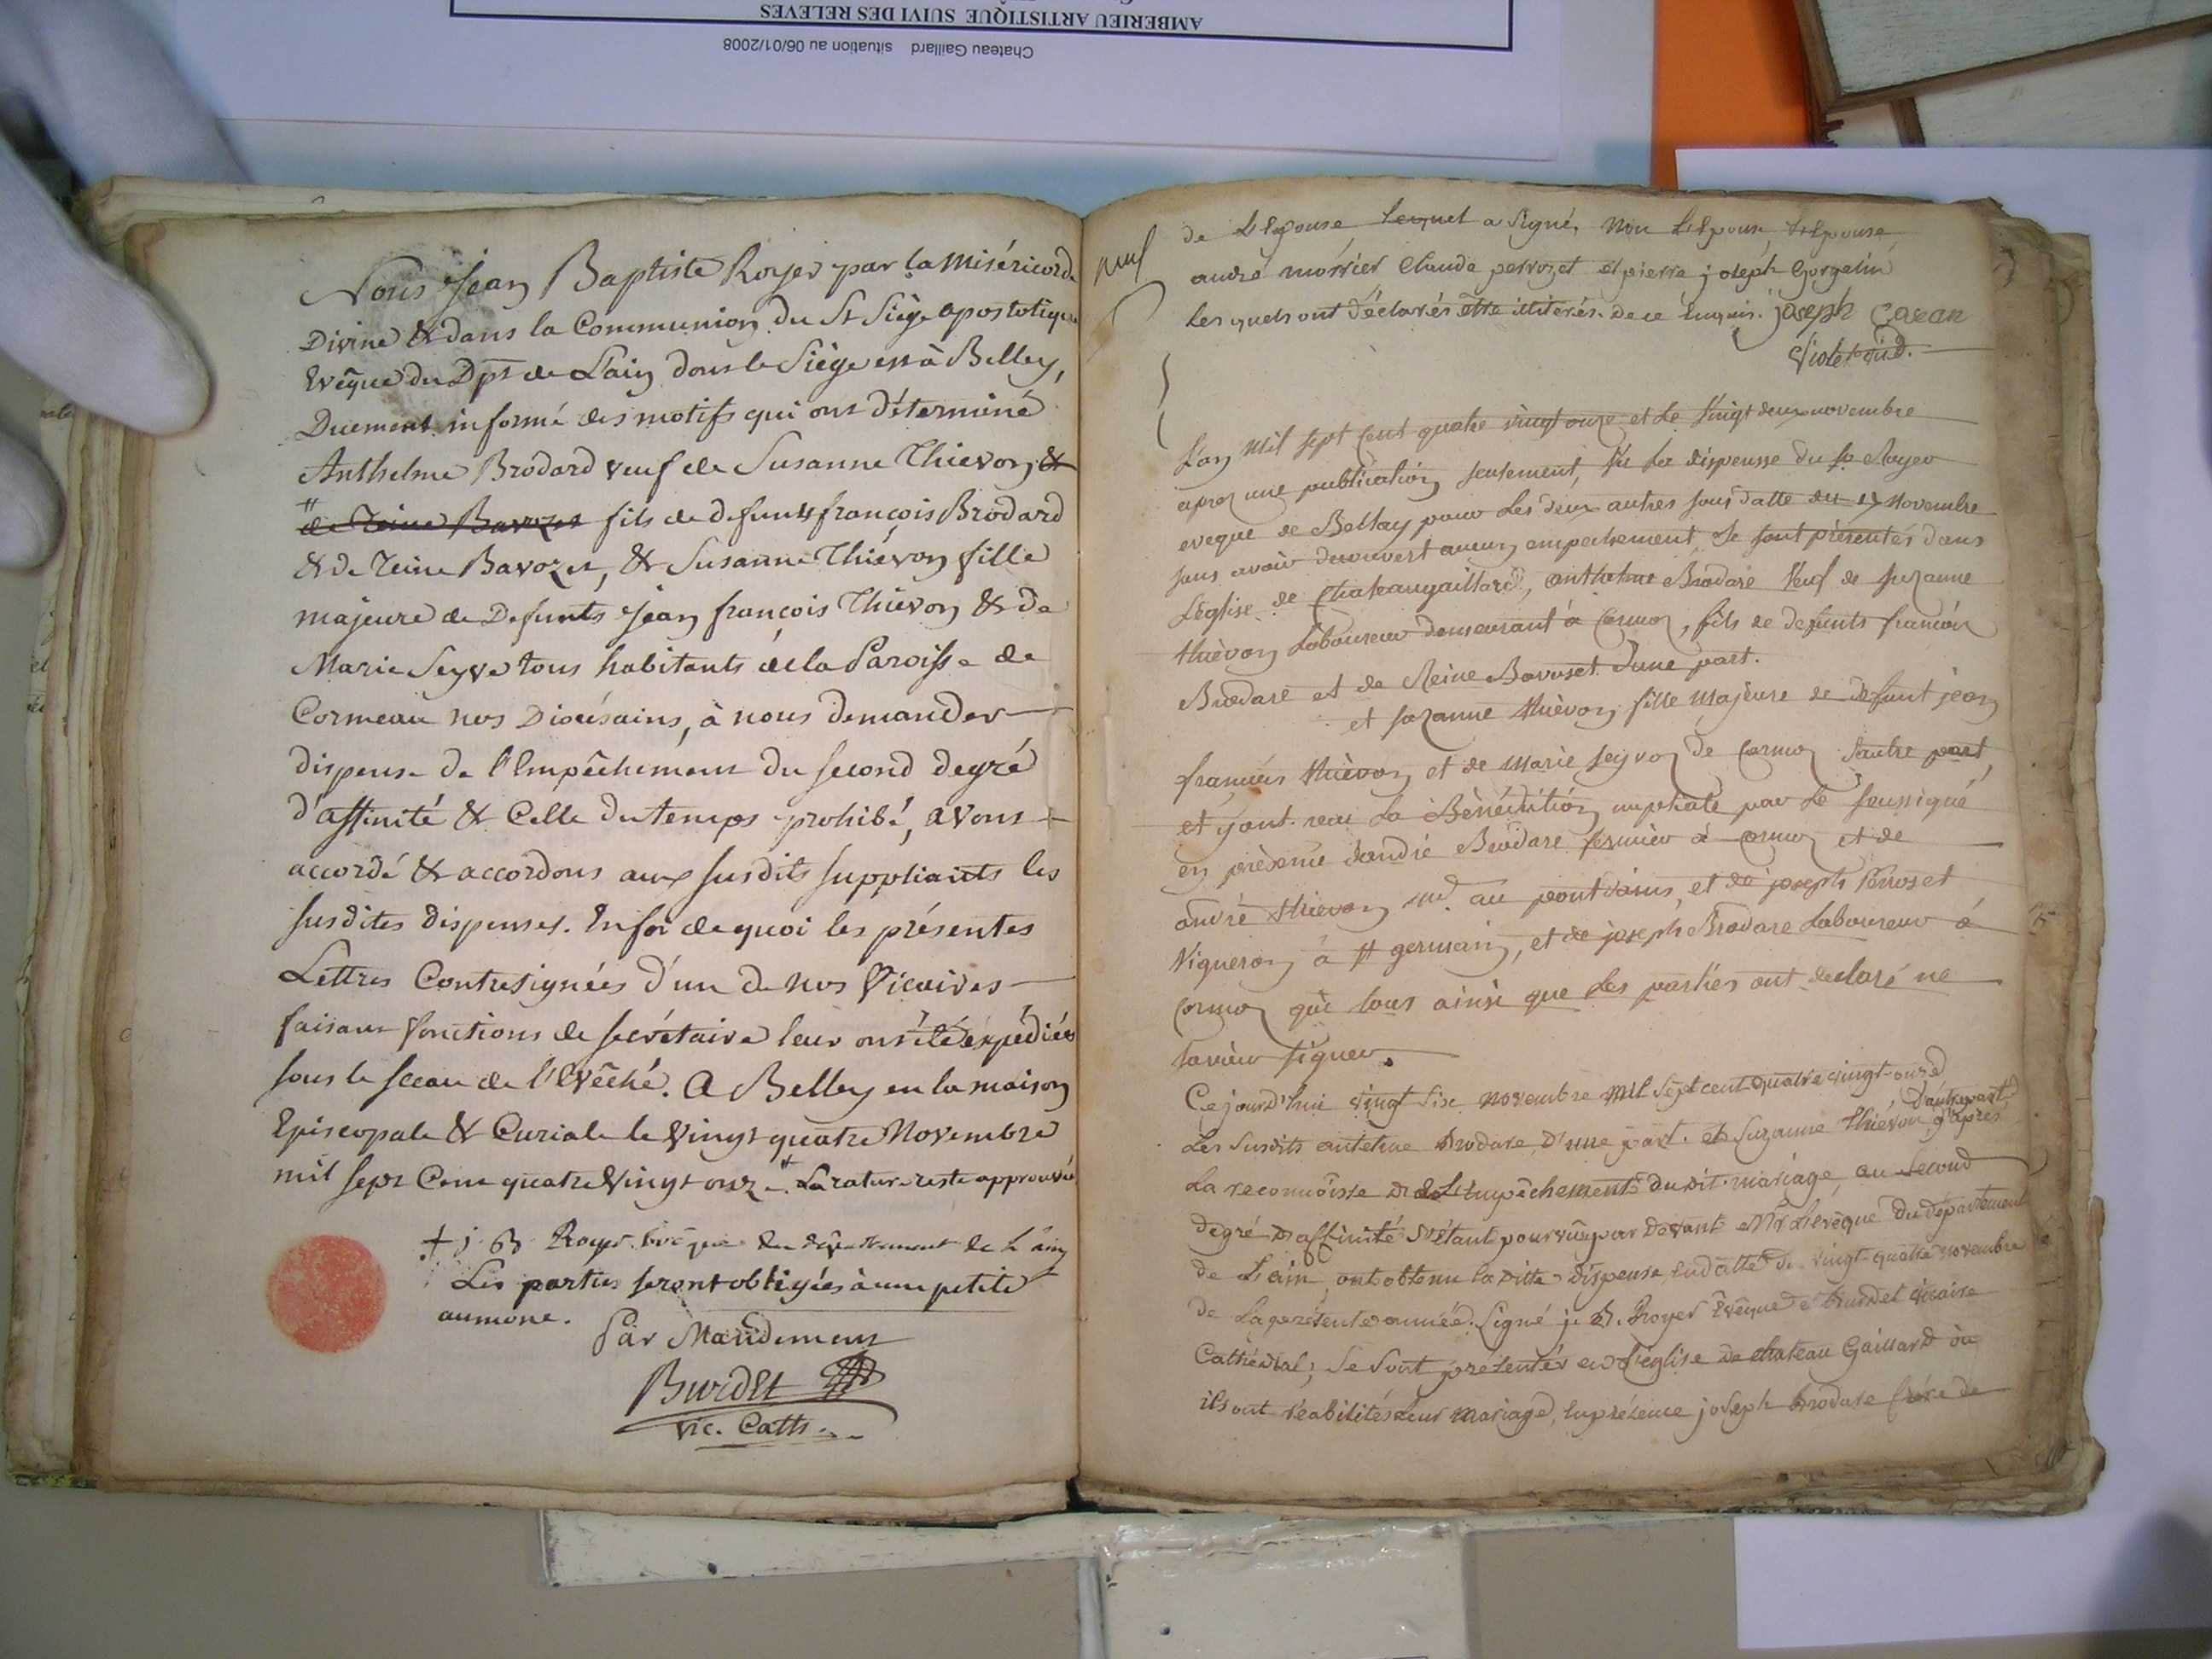 AMBERIEU ARTISTIQUE SUIVI DES RELEVES
Chateau Gaillard situation au 06/01/2008
Nous Jean Baptiste Royer par la Miséricorde
Divine & dans la Communion du St Siège apostolique
Evêque du Dpt de L'ain dont le Siège est à Belley,
Duement informé des motifs qui ont déterminé
Anthelme Brodard veuf de Susanne Thievon &
# de Reine Bavozet fils de defunts françois Brodard
& de Reine Bavozet, & Susanne Thiévon fille
majeure de Defunts Jean françois Thiévon & de
Marie Seyve tous habitants de la Paroisse de
Cormeau nos Diocésains, à nous demander
dispense de l'Empêchement du second degré
d'affinité & Celle du temps prohibé, avons
accordé & accordons aux susdits suppliants les
susdites dispenses. En foi de quoi les présentes
Lettres Contresignées d'un de nos Vicaires
faisant fonctions de secrétaire leur ont été expédiées
sous le sceau de l'Evêché. A Belley en la maison
Episcopale & Curiale le Vingt quatre Novembre
mil sept Cent quatre Vingt onze. # La rature reste approuvée
+ j. B Royer Evêque du département de L'ain
Les parties seront obligées à une petite
aumone.
Par Mandement
Burdet
Vic. Cath.
de L'Epouse lequel a signé, non L'Epoux, L'Epouse
andré morrier Claude perrozet et pierre joseph Gorgelin
Les quels ont déclarés être illitérés de ce enquis. joseph Cozan
Violet curé.
L'an mil sept cent quatre vingt onze et le vingt deux novembre
aprez une publication seulement, vu la dispense du sr Royer
eveque de Bellay pour les deux autres sous datte du 17 Novembre
sans avoir decouvert aucun empechement, se sont présentés dans
L'église de Chateaugaillard, anthelme Brodare Veuf de suzanne
thièvon Laboureur demeurant à Cormoz, fils de defunts françois
Brodare et de Reine Bavoset d'une part.
et suzanne thièvon fille majeure de defunt jean
françois thièvon et de marie seyvoz de Cormoz d'autre part,
et y ont recu la Bénédiction nuptiale par le soussigné
en présence d'andré Brodare fermier à Cormoz et de
andré thievon md au pont d'ains, et de joseph Perroset
Vigneron à st germain, et de joseph Brodare Laboureur à
Cormoz qui tous ainsi que les parties ont declaré ne
savoir signer.
Ce jourd'hui vingt six novembre mil sept cent quatre vingt-onze
Les susdits antelme Brodare, D'une part. et suzanne thiévon d'autre part, d'après
La reconnoisse de L'empêchement du dit mariage, au second
degré D'affinité s'étant pourvûs par devant Mr L'evêque du département
de L'ain, ont obtenu la ditte dispense, en datte du vingt-quatre novembre
de La présente année. Signé j. B. Royer Evêque & burdet vicaire
Cathédral; Se sont présentés en L'église de chateau Gaillard où
ils ont réabilités Leur mariage, en présence joseph brodare frère de